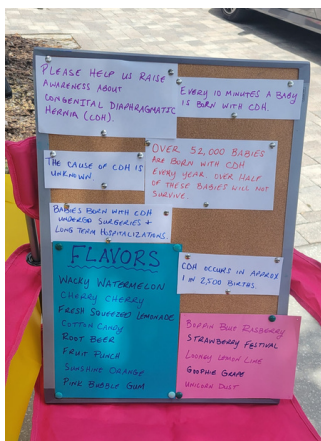 PLEASE HELP US RAISE
AWARENESS ABOUT
CONGENITAL DIAPHRAGMATIC
HERNIA (CDH).
EVERY 10 MINUTES A BABY
IS BORN WITH CDH.
OVER 52,000 BABIES
ARE BORN WITH CDH
EVERY YEAR. OVER HALF
OF THESE BABIES WILL NOT
SURVIVE.
THE CAUSE OF CDH IS
UNKNOWN.
BABIES BORN WITH CDH
UNDERGO SURGERIES +
LONG TERM HOSPITALIZATIONS.
CDH OCCURS IN APPROX
1 IN 2,500 BIRTHS.
FLAVORS
WACKY WATERMELON
CHERRY CHERRY
FRESH SQUEEZED LEMONADE
COTTON CANDY
ROOT BEER
FRUIT PUNCH
SUNSHINE ORANGE
PINK BUBBLE GUM
BOPPIN BLUE RASBERRY
STRAWBERRY FESTIVAL
LOONEY LEMON LIME
GOOPHIE GRAPE
UNICORN DUST